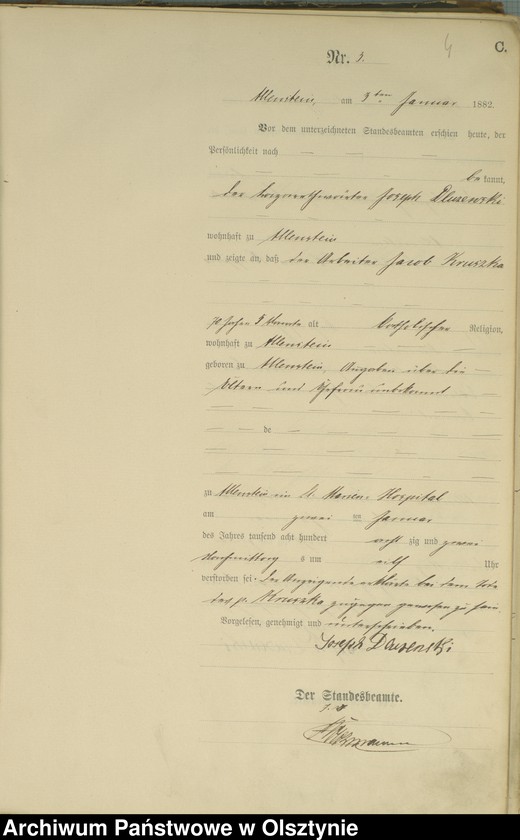 4
C.
Nr. 3.
Allenstein, am 3ten Januar 1882.
Vor dem unterzeichneten Standesbeamten erschien heute, der
Persönlichkeit nach
bekannt,
der Joseph Dluzewski
wohnhaft zu Allenstein
und zeigte an, daß der Arbeiter Jacob Kruszka
70 Jahre Monate alt katholischer Religion,
wohnhaft zu Allenstein
geboren zu Allenstein, Angaben über die
Eltern und Ehefrau unbekannt
de
zu Allenstein im St. Marien-Hospital
am zwei ten Januar
des Jahres tausend acht hundert acht zig und zwei
Nachmittag s um elf Uhr
verstorben sei. Der Anzeigende erklärte bei dem Tode
des p. Kruszka zugegen gewesen zu sein.
Vorgelesen, genehmigt und unterschrieben.
Joseph Dluzewski
Der Standesbeamte.
Archiwum Państwowe w Olsztynie